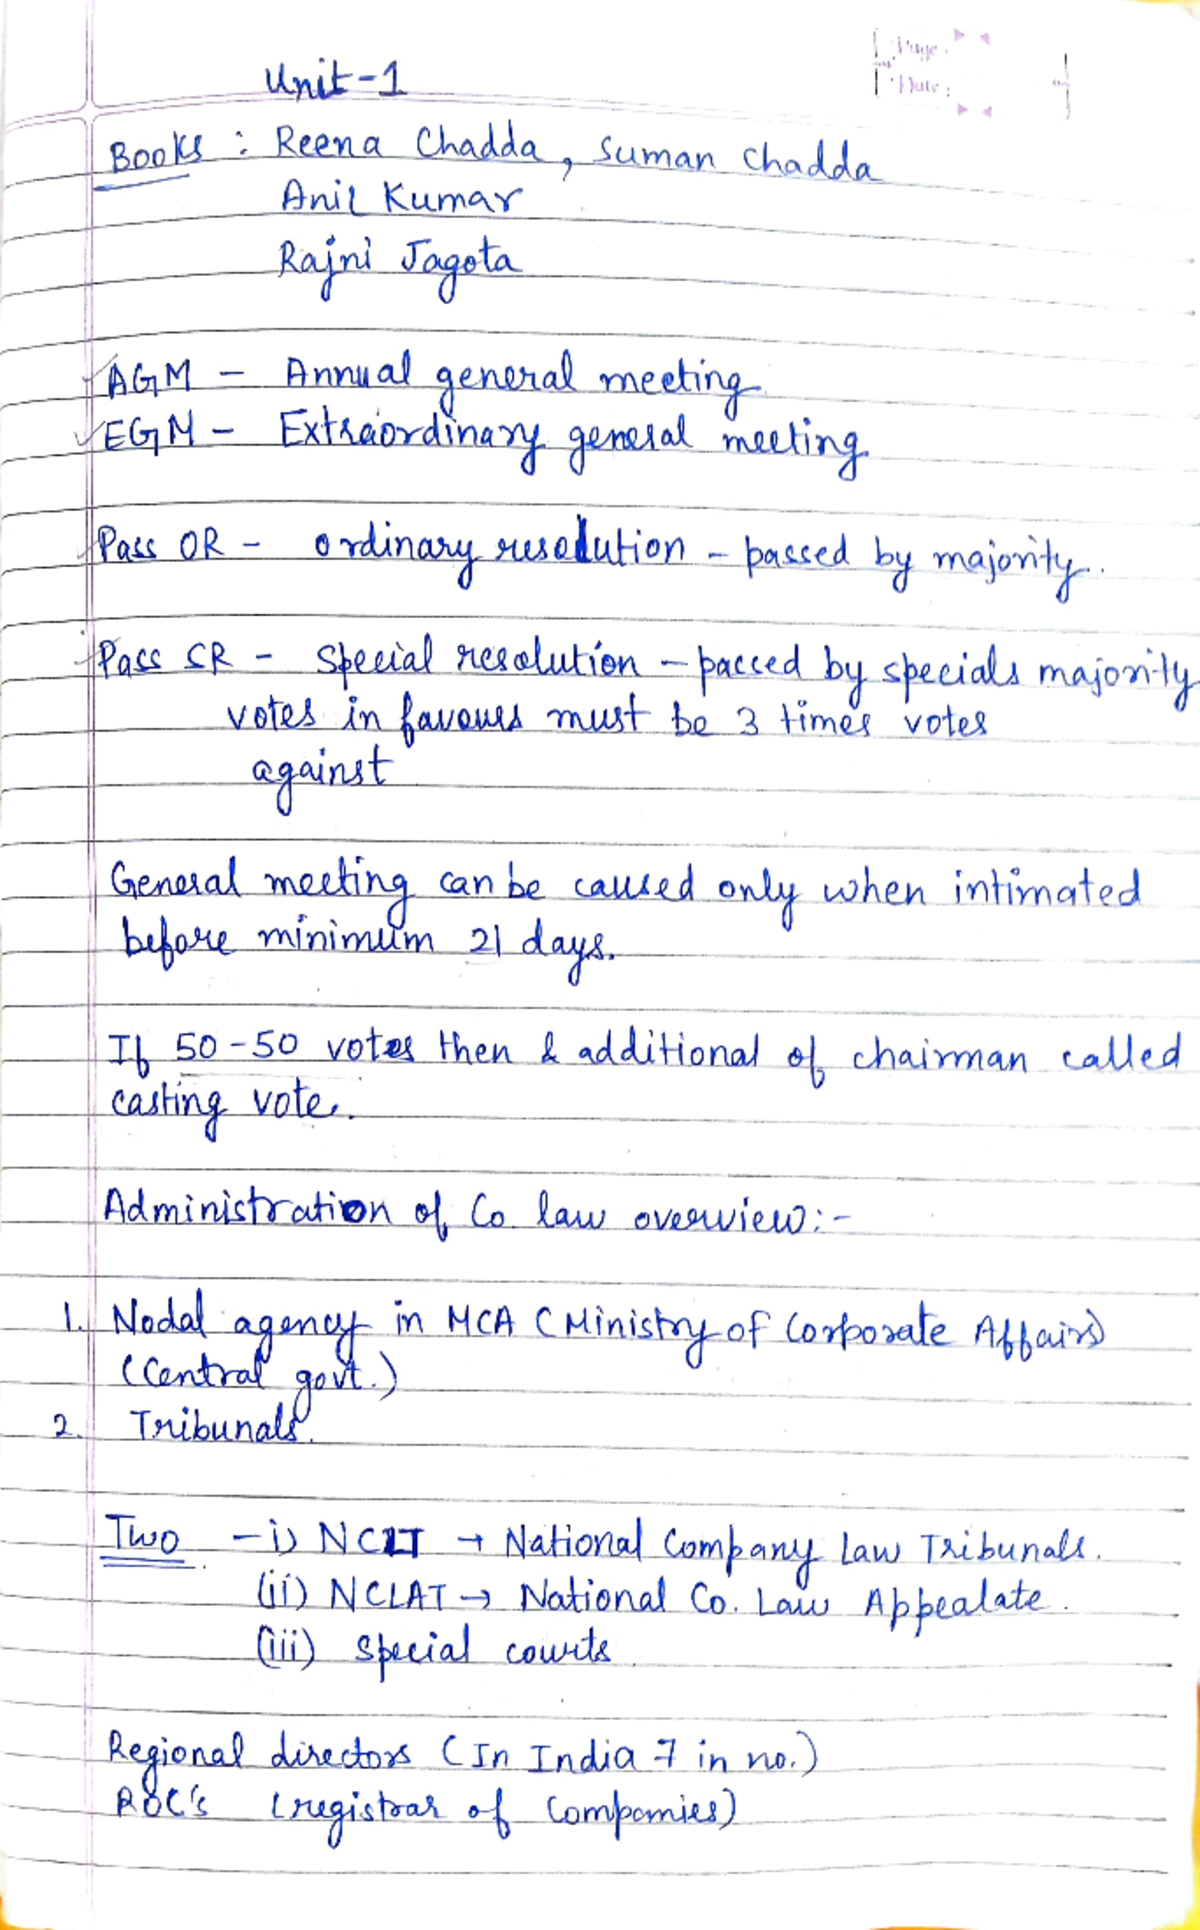 Page :
Date :
Unit-1
Books : Reena Chadda, Suman Chadda
Anil Kumar
Rajni Jagota
AGM - Annual general meeting
EGM - Extraordinary general meeting
Pass OR - ordinary resolution - passed by majority.
Pass SR - Special resolution - passed by specials majority
votes in favours must be 3 times votes
against
General meeting can be caused only when intimated
before minimum 21 days.
If 50-50 votes then & additional of chairman called
casting vote.
Administration of Co law overview:-
1. Nodal agency in MCA (Ministry of Corporate Affairs)
(Central govt.)
2. Tribunals.
Two - i) NCLT → National Company Law Tribunals.
(ii) NCLAT → National Co. Law Appealate.
(iii) Special courts
Regional directors (In India 7 in no.)
ROC's (registrar of Companies)